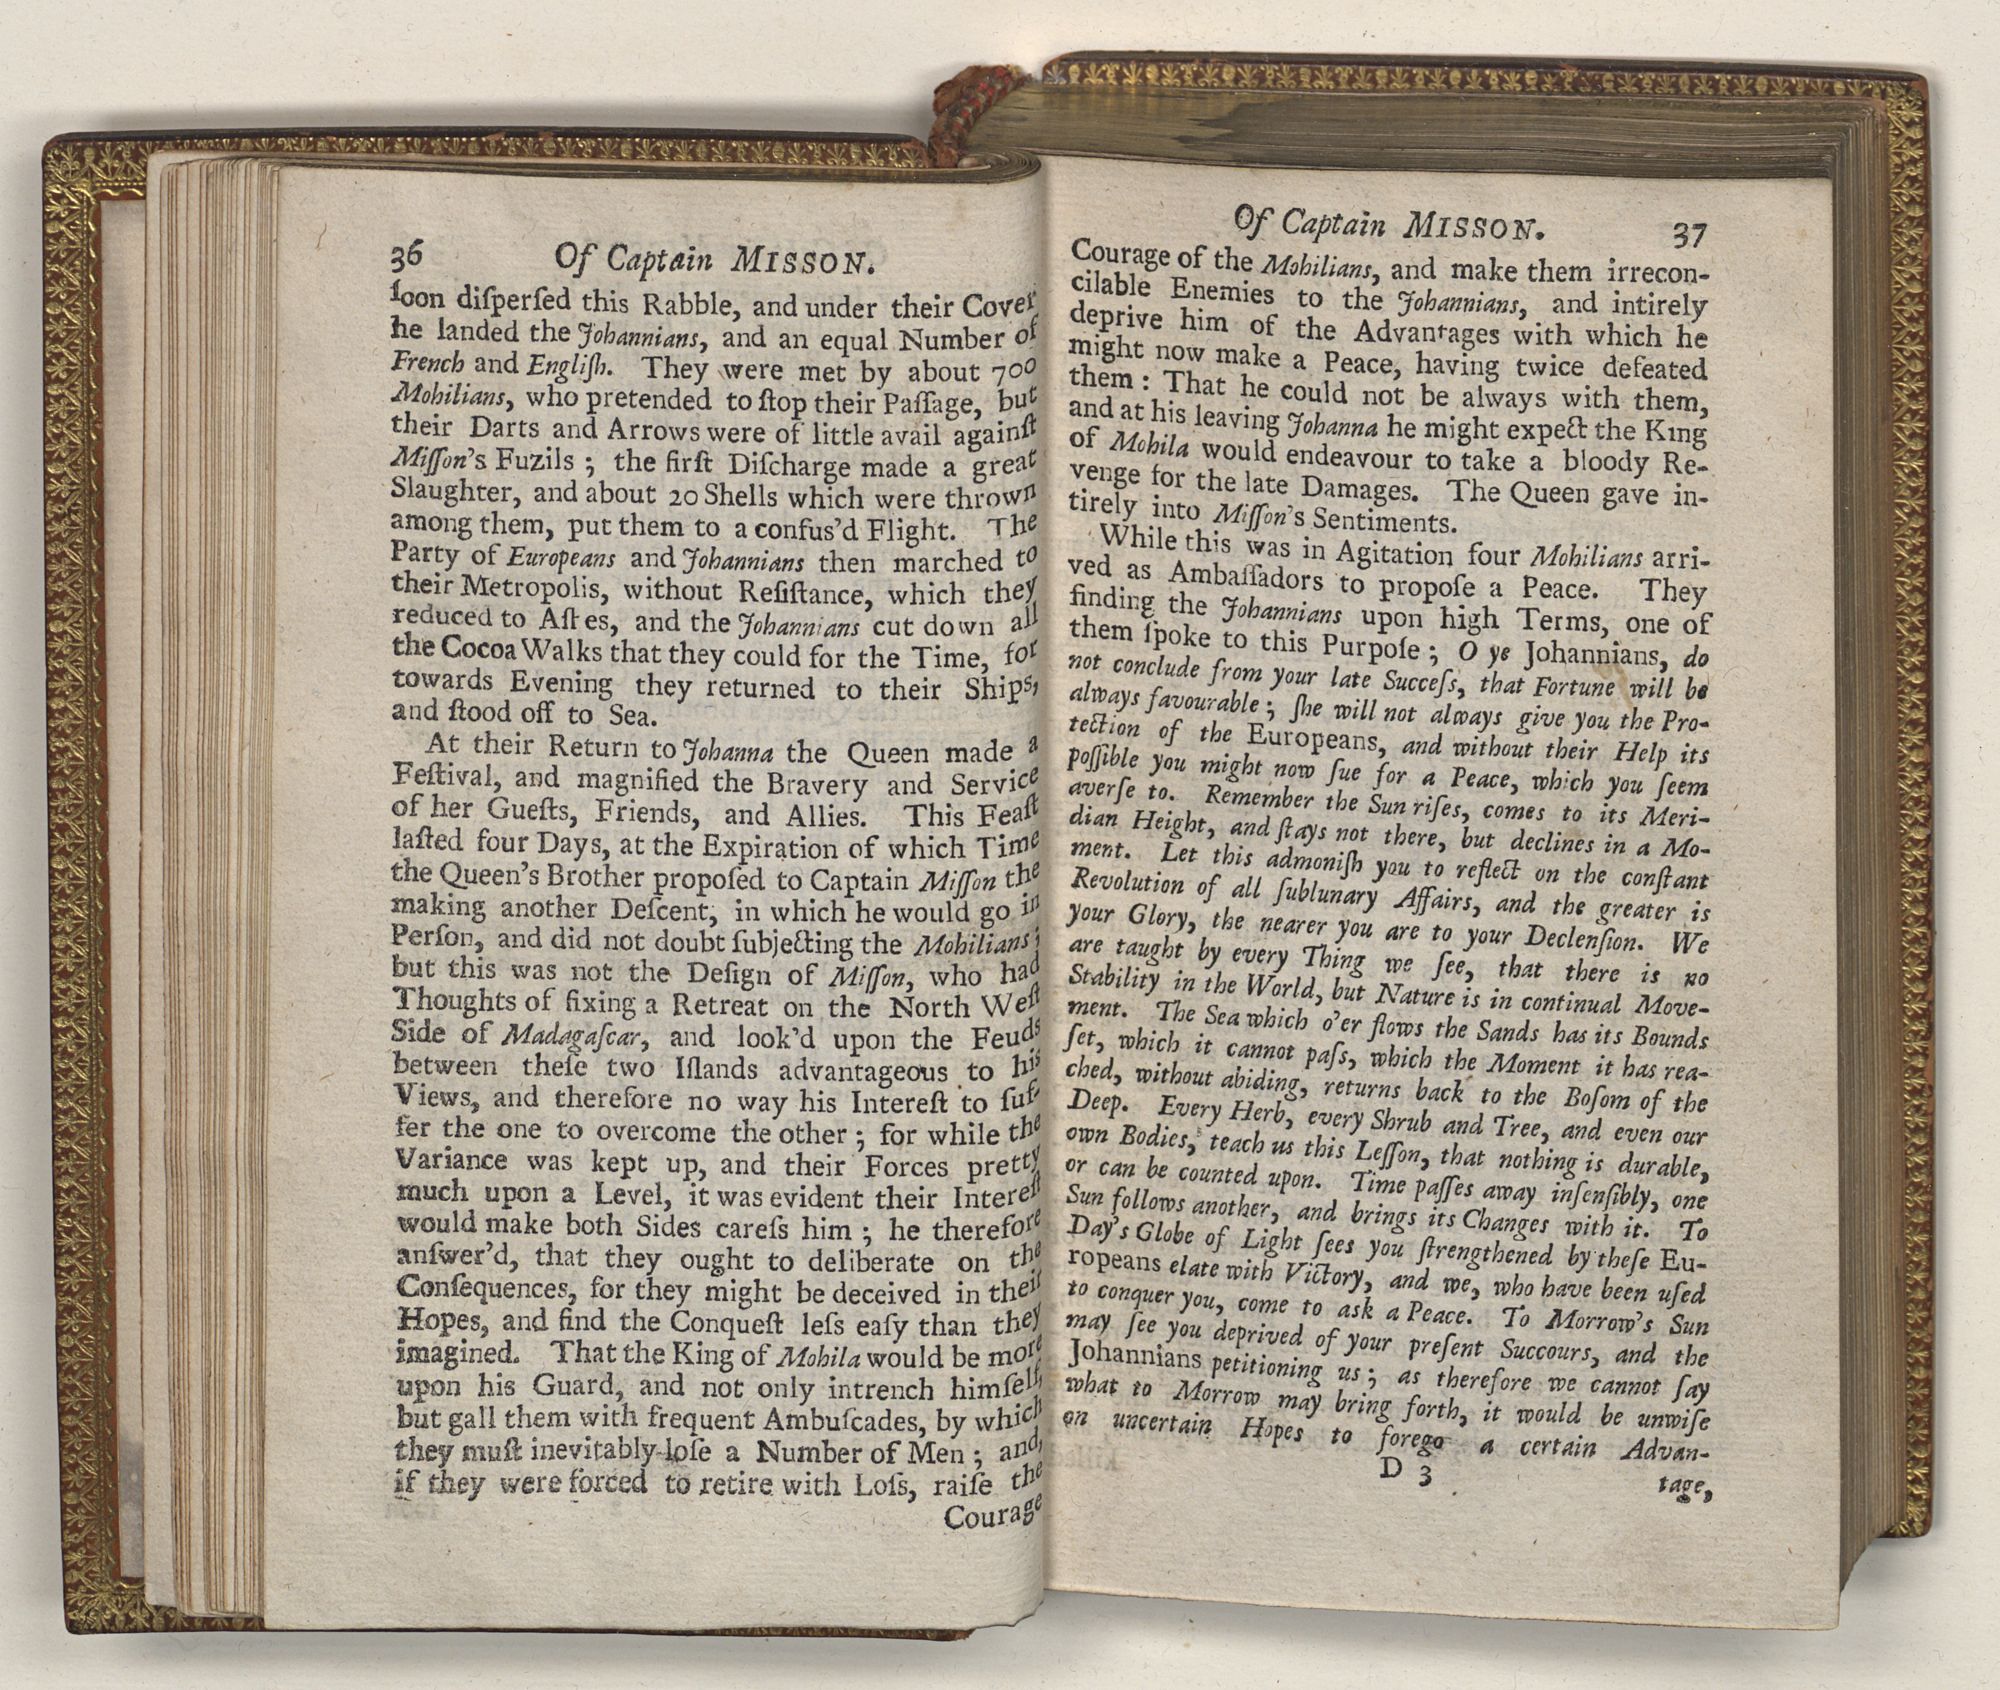 36 Of Captain MISSON.
ſoon diſperſed this Rabble, and under their Cover
he landed the Johannians, and an equal Number of
French and Engliſh. They were met by about 700
Mohilians, who pretended to ſtop their Paſſage, but
their Darts and Arrows were of little avail againſt
Miſſon's Fuzils; the firſt Diſcharge made a great
Slaughter, and about 20 Shells which were thrown
among them, put them to a confus'd Flight. The
Party of Europeans and Johannians then marched to
their Metropolis, without Reſiſtance, which they
reduced to Aſtes, and the Johannians cut down all
the Cocoa Walks that they could for the Time, for
towards Evening they returned to their Ships,
and ſtood off to Sea.
At their Return to Johanna the Queen made a
Feſtival, and magnified the Bravery and Service
of her Gueſts, Friends, and Allies. This Feaſt
laſted four Days, at the Expiration of which Time
the Queen's Brother propoſed to Captain Miſſon the
making another Deſcent, in which he would go in
Perſon, and did not doubt ſubjecting the Mohilians;
but this was not the Deſign of Miſſon, who had
Thoughts of fixing a Retreat on the North Weſt
Side of Madagaſcar, and look'd upon the Feuds
between theſe two Iſlands advantageous to his
Views, and therefore no way his Intereſt to ſuf-
fer the one to overcome the other; for while the
Variance was kept up, and their Forces pretty
much upon a Level, it was evident their Intereſt
would make both Sides careſs him; he therefore
anſwer'd, that they ought to deliberate on the
Conſequences, for they might be deceived in their
Hopes, and find the Conqueſt leſs eaſy than they
imagined. That the King of Mohila would be more
upon his Guard, and not only intrench himſelf,
but gall them with frequent Ambuſcades, by which
they muſt inevitably loſe a Number of Men; and,
if they were forced to retire with Loſs, raiſe the
Courage
Of Captain MISSON. 37
Courage of the Mohilians, and make them irrecon-
cilable Enemies to the Johannians, and intirely
deprive him of the Advantages with which he
might now make a Peace, having twice defeated
them: That he could not be always with them,
and at his leaving Johanna he might expect the King
of Mohila would endeavour to take a bloody Re-
venge for the late Damages. The Queen gave in-
tirely into Miſſon's Sentiments.
While this was in Agitation four Mohilians arri-
ved as Ambaſſadors to propoſe a Peace. They
finding the Johannians upon high Terms, one of
them ſpoke to this Purpoſe; O ye Johannians, do
not conclude from your late Succeſs, that Fortune will be
always favourable; ſhe will not always give you the Pro-
tection of the Europeans, and without their Help its
poſſible you might now ſue for a Peace, which you ſeem
averſe to. Remember the Sun riſes, comes to its Meri-
dian Height, and ſtays not there, but declines in a Mo-
ment. Let this admoniſh you to reflect on the conſtant
Revolution of all ſublunary Affairs, and the greater is
your Glory, the nearer you are to your Declenſion. We
are taught by every Thing we ſee, that there is no
Stability in the World, but Nature is in continual Move-
ment. The Sea which o'er flows the Sands has its Bounds
ſet, which it cannot paſs, which the Moment it has rea-
ched, without abiding, returns back to the Boſom of the
Deep. Every Herb, every Shrub and Tree, and even our
own Bodies, teach us this Leſſon, that nothing is durable,
or can be counted upon. Time paſſes away inſenſibly, one
Sun follows another, and brings its Changes with it. To
Day's Globe of Light ſees you ſtrengthened by theſe Eu-
ropeans elate with Victory, and we, who have been uſed
to conquer you, come to ask a Peace. To Morrow's Sun
may ſee you deprived of your preſent Succours, and the
Johannians petitioning us; as therefore we cannot ſay
what to Morrow may bring forth, it would be unwiſe
on uncertain Hopes to forego a certain Advan-
D 3
tage,